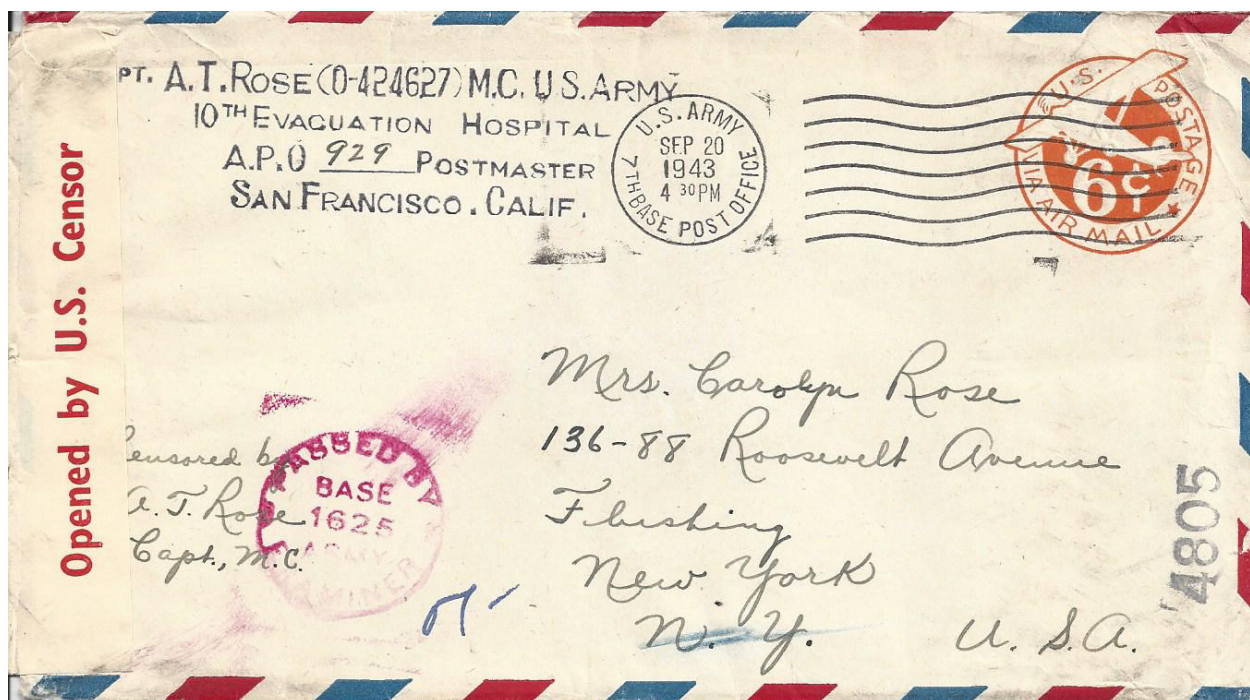 PT. A.T. ROSE (O-424627) M.C. U.S. ARMY
10TH EVACUATION HOSPITAL
A.P.O 929 POSTMASTER
SAN FRANCISCO. CALIF.
U.S. ARMY
SEP 20
1943
4 30 PM
7TH BASE POST OFFICE
U.S. POSTAGE
6¢
VIA AIR MAIL
Opened by U.S. Censor
Mrs. Carolyn Rose
136-88 Roosevelt Avenue
Flushing
New York
N. Y. U. S. A.
Censored by
A. T. Rose
Capt., M.C.
PASSED BY
BASE
1625
ARMY
EXAMINER
4805